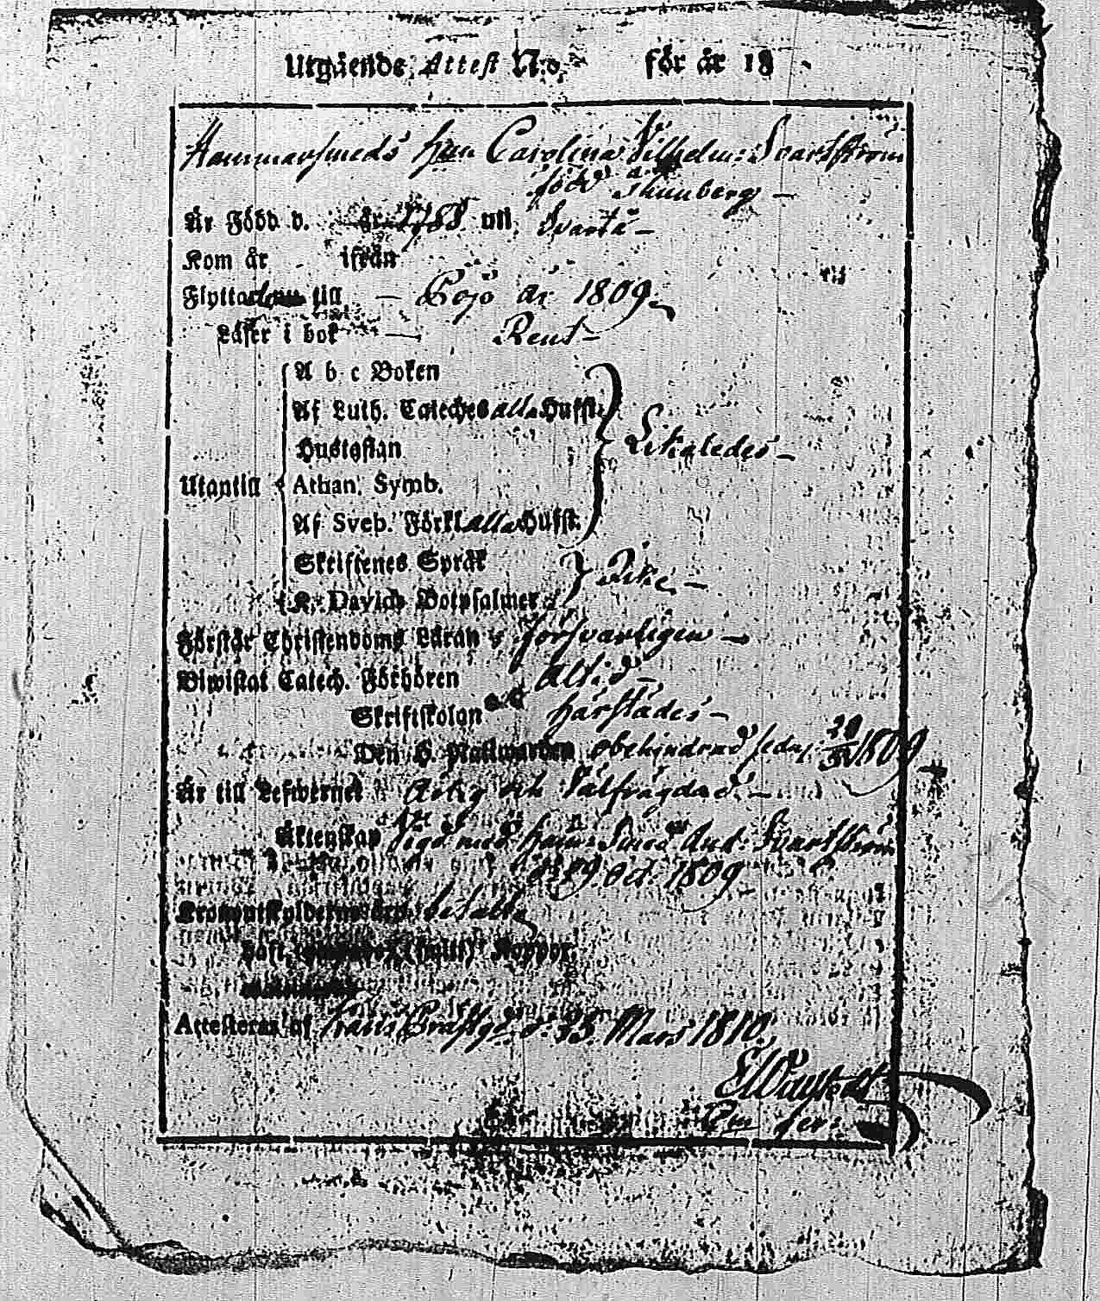 Utgående Attest N:o för år 18
Hammarsmeds hun Carolina Vilhelm: Svartström
född Thunberg –
Är Född d. år 1788 uti Svartå –
Kom år ifrån
Flyttar till – Pojo år 1809 –
Läser i bok – Rent –
A b c Boken
Af Luth. Cateches alla Hufst.
Hustaflan
Likaledes –
Utantill Athan. Symb.
Af Sveb. Förkl. alla Hufst.
Skriftenes Språk
Icke –
K. Davids Botpsalmer
Förstår Christendoms Läran försvarligen –
Biwistat Catech. Förhören Altid –
Skriftskolan härstädes –
Den H. Nattwarden obehindrad sedn. 1809
Är till Lefwernet Ärlig och Välfrägdad. –
Äktenskap Vigd med Ham: Smed And: Svartström
d. 29. Oct. 1809
Kronoutskylderne betalte
haft (haltt) Koppor.
Attesteras af Karis Prästgd. d. 23. Mars 1810,